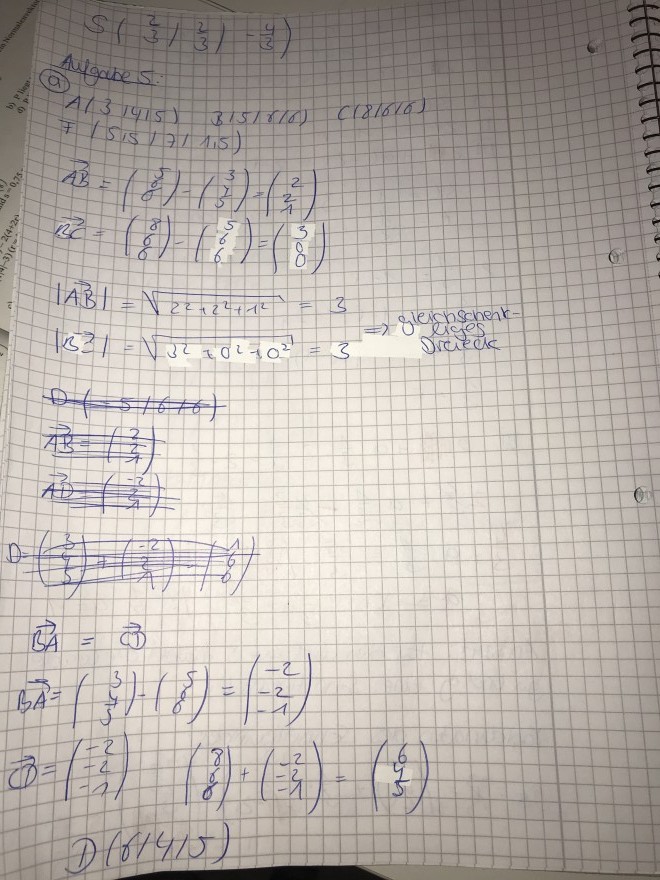 S ( 2/3 | 2/3 | -4/3 )
Aufgabe 5:
a) A(3|4|5) B(5|6|6) C(8|6|6)
F(5,5|7|1,5)
AB = (5 6 6) - (3 4 5) = (2 2 1)
BC = (8 6 6) - (5 6 6) = (3 0 0)
|AB| = √2²+2²+1² = 3
|BC| = √3²+0²+0² = 3 => gleichschenk-
liges
Dreieck
D(-5|6|6)
AB = (2 2 1)
AD = (-2 2 1)
D = (3 4 5) + (-2 2 1) = (1 6 6)
BA = CD
BA = (3 4 5) - (5 6 6) = (-2 -2 -1)
CD = (-2 -2 -1) (8 6 6) + (-2 -2 -1) = (6 4 5)
D(6|4|5)